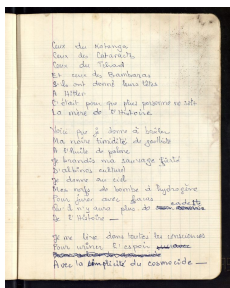 Ceux du Katanga
Ceux des Cataracts
Ceux du Tchad
Et ceux des Bambaras
S'ils ont donné leurs têtes
A Hitler
C'était pour que plus personne ne soit
La mère de l'Histoire
Voici que je donne à brûler
Ma noire timidité de
A l'huile de palme
Je brandis ma sauvage
D'albinos culturel
Je donne au ciel
Mes nerfs de bombe à hydrogène
Pour jurer avec
Qu'il n'y aura plus de cadette
De l'Histoire —
Je me lève dans toutes les consciences
Pour uriner l'espoir
Avec la complicité du cosmocide —